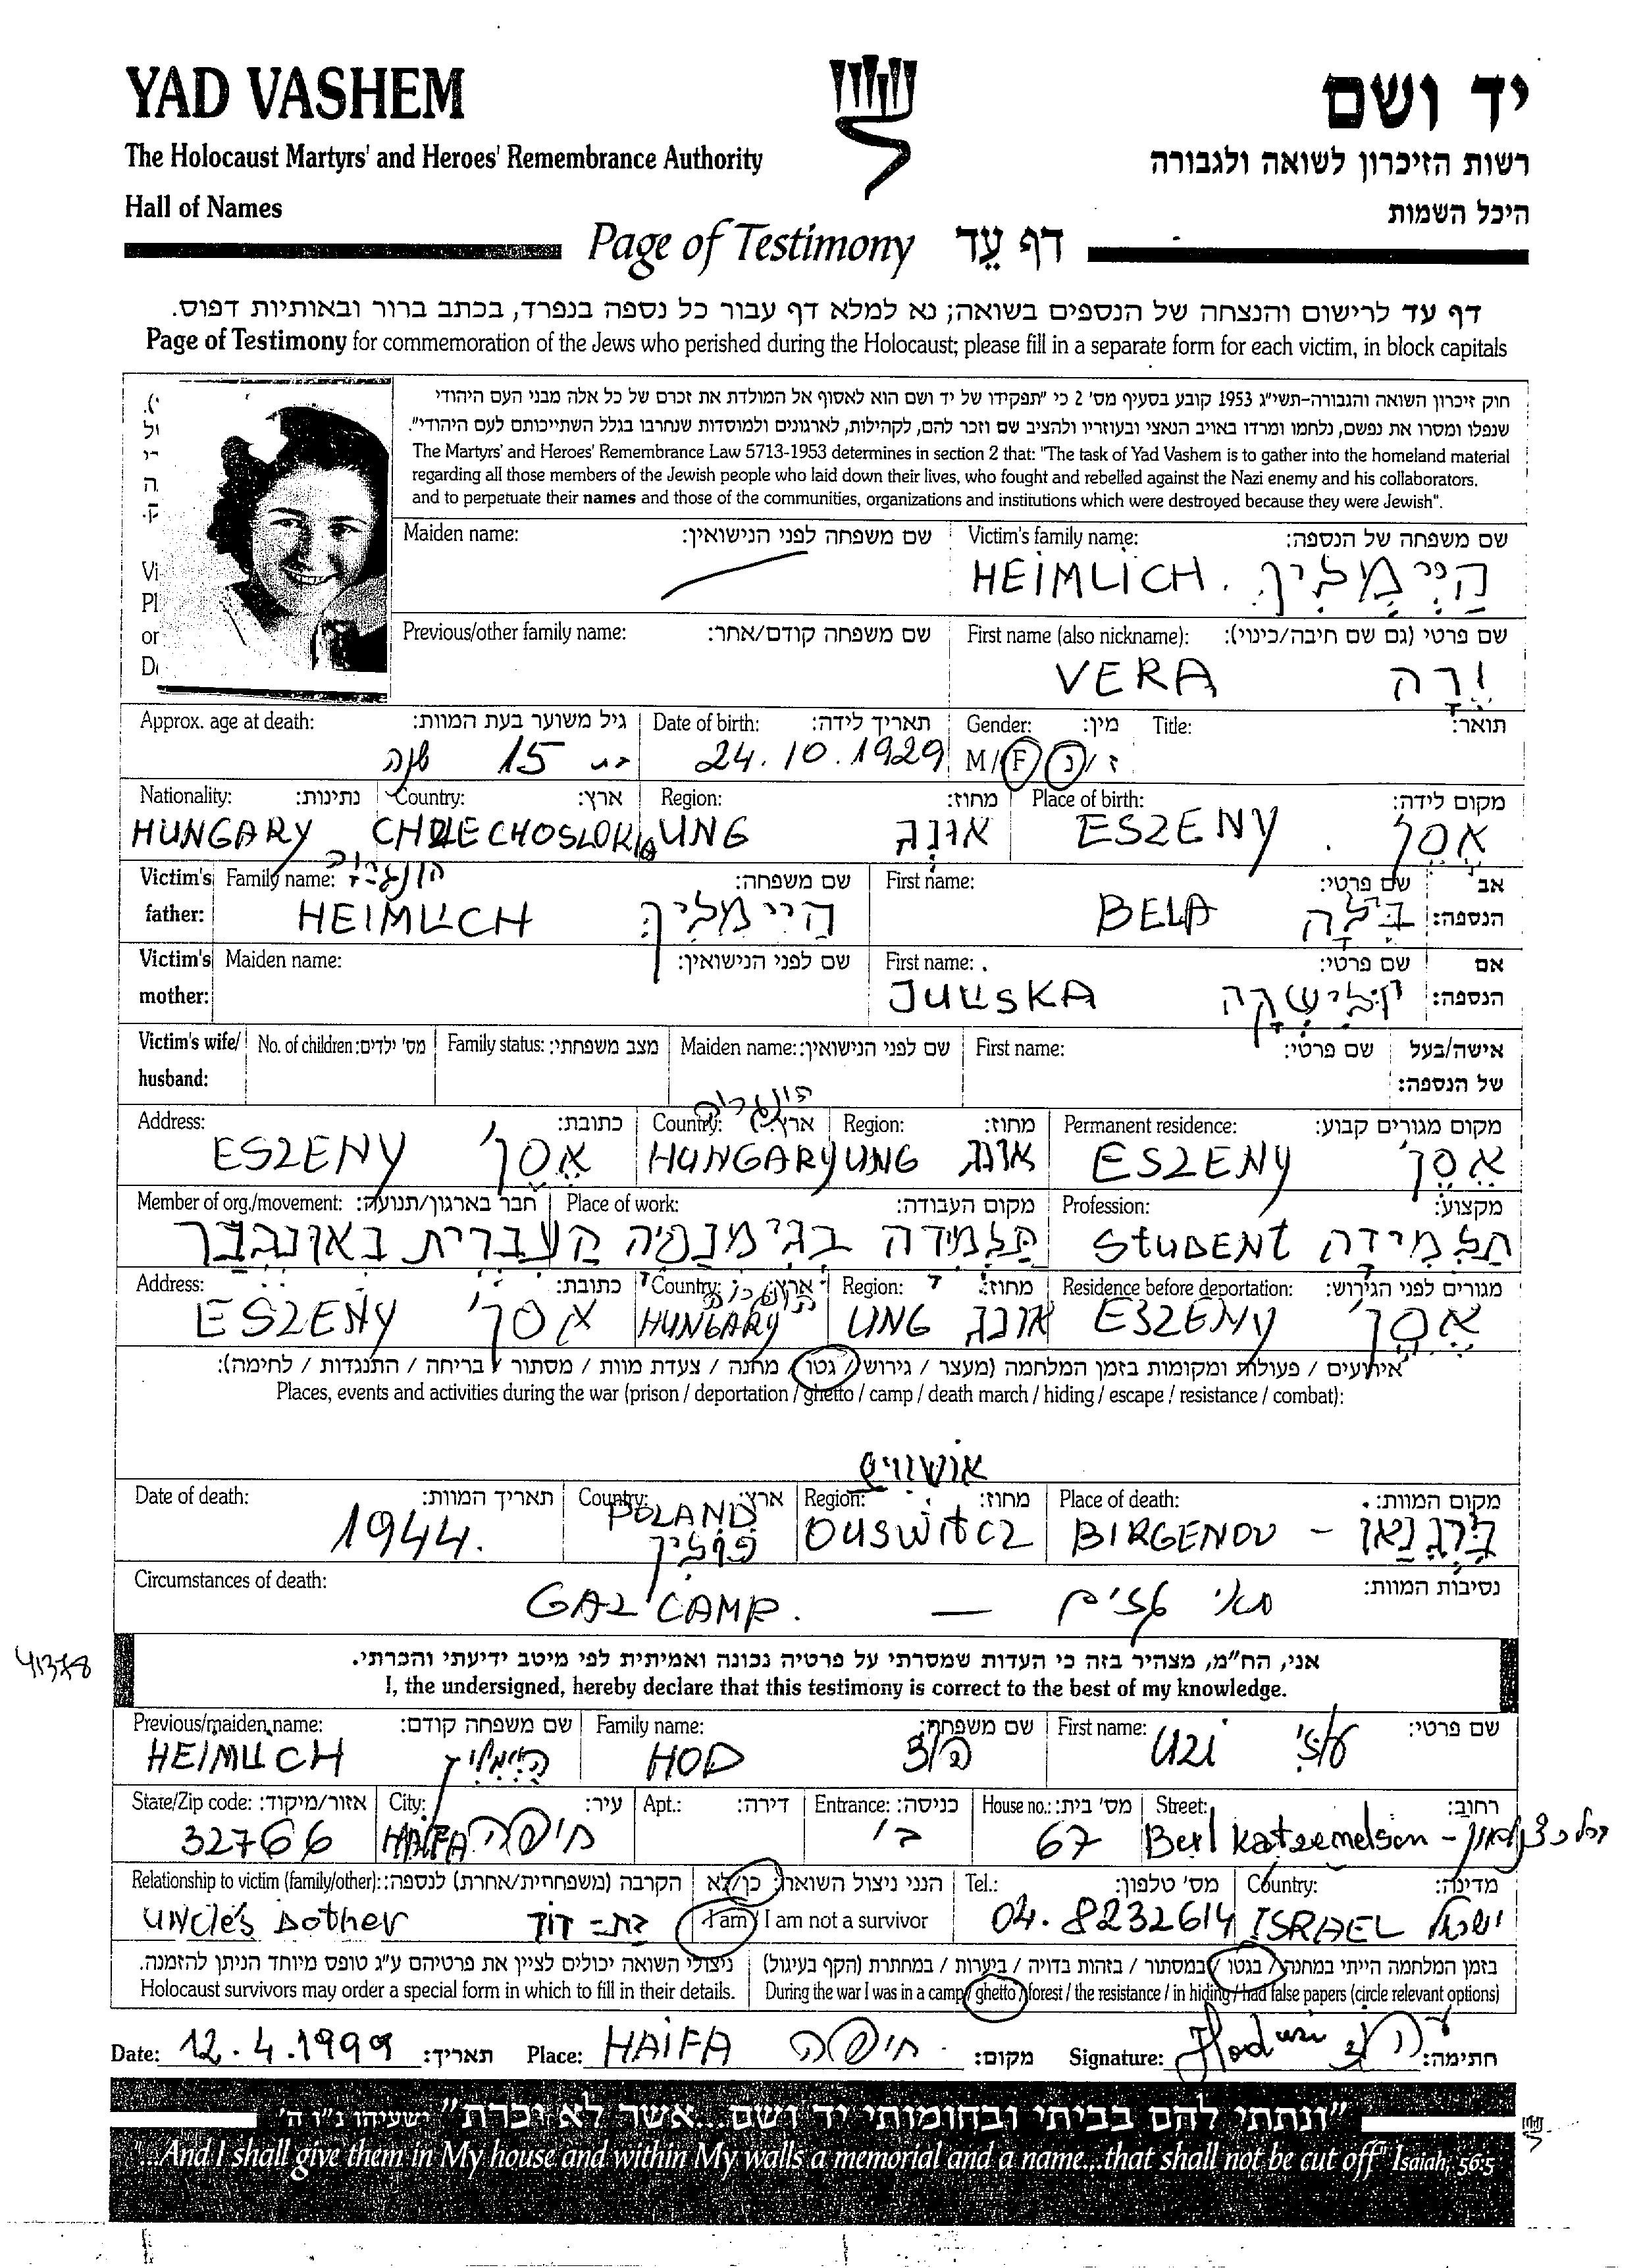 YAD VASHEM יד ושם
The Holocaust Martyrs' and Heroes' Remembrance Authority רשות הזיכרון לשואה ולגבורה
Hall of Names היכל השמות
Page of Testimony דף עֵד
דף עד לרישום והנצחה של הנספים בשואה; נא למלא דף עבור כל נספה בנפרד, בכתב ברור ובאותיות דפוס.
Page of Testimony for commemoration of the Jews who perished during the Holocaust; please fill in a separate form for each victim, in block capitals
חוק זיכרון השואה והגבורה-תשי"ג 1953 קובע בסעיף מס' 2 כי "תפקידו של יד ושם הוא לאסוף אל המולדת את זכרם של כל אלה מבני העם היהודי
שנפלו ומסרו את נפשם, נלחמו ומרדו באויב הנאצי ובעוזריו ולהציב שם וזכר להם, לקהילות, לארגונים ולמוסדות שנחרבו בגלל השתייכותם לעם היהודי".
The Martyrs' and Heroes' Remembrance Law 5713-1953 determines in section 2 that: "The task of Yad Vashem is to gather into the homeland material
regarding all those members of the Jewish people who laid down their lives, who fought and rebelled against the Nazi enemy and his collaborators,
and to perpetuate their names and those of the communities, organizations and institutions which were destroyed because they were Jewish".
Maiden name: שם משפחה לפני הנישואין: Victim's family name: שם משפחה של הנספה:
HEIMLICH. הַיימְלִיך
Previous/other family name: שם משפחה קודם/אחר: First name (also nickname): שם פרטי (גם שם חיבה/כינוי):
VERA וֵרָה
Approx. age at death: גיל משוער בעת המוות: Date of birth: תאריך לידה: Gender: מין: Title: תואר:
בת 15 שנה 24.10.1929 M/F ז/נ
Nationality: נתינות: Country: ארץ: Region: מחוז: Place of birth: מקום לידה:
HUNGARY UNG אונג ESZENY. אֶסֶן'
הונגריה
Victim's father: Family name: שם משפחה: First name: שם פרטי: אב הנספה:
HEIMLICH היימליך BELA בֵּלָה
Victim's mother: Maiden name: שם לפני הנישואין: First name: שם פרטי: אם הנספה:
JULISKA יולישקה
Victim's wife/husband: No. of children: מס' ילדים: Family status: מצב משפחתי: Maiden name: שם לפני הנישואין: First name: שם פרטי: אישה/בעל של הנספה:
הונגריה
Address: כתובת: Country: ארץ: Region: מחוז: Permanent residence: מקום מגורים קבוע:
ESZENY אֶסֶן' HUNGARY UNG אונג ESZENY אֶסֶן'
Member of org./movement: חבר בארגון/תנועה: Place of work: מקום העבודה: Profession: מקצוע:
תלמידה בגימנסיה העברית באונגבר STUDENT תלמידה
Address: כתובת: Country: ארץ: Region: מחוז: Residence before deportation: מגורים לפני הגירוש:
ESZENY אסן' HUNGARY UNG אונג ESZENY אֶסֶן'
אירועים / פעולות ומקומות בזמן המלחמה (מעצר / גירוש / גטו / מחנה / צעדת מוות / מסתור / בריחה / התנגדות / לחימה):
Places, events and activities during the war (prison / deportation / ghetto / camp / death march / hiding / escape / resistance / combat):
אושוויץ
Date of death: תאריך המוות: Country: ארץ: Region: מחוז: Place of death: מקום המוות:
1944. POLAND פולין OUSWITCZ BIRGENOU - בירגנאו
Circumstances of death: נסיבות המוות:
GAZ CAMP. — תאי גזים
אני, הח"מ, מצהיר בזה כי העדות שמסרתי על פרטיה נכונה ואמיתית לפי מיטב ידיעתי והכרתי.
I, the undersigned, hereby declare that this testimony is correct to the best of my knowledge.
41378
Previous/maiden name: שם משפחה קודם: Family name: שם משפחה: First name: שם פרטי:
HEIMLICH היימליך HOD הוד UZI עוזי
State/Zip code: אזור/מיקוד: City: עיר: Apt.: דירה: Entrance: כניסה: House no.: מס' בית: Street: רחוב:
32766 HAIFA חיפה ב' 67 Berl Katzenelson - ברל כצנלסון
Relationship to victim (family/other): הקרבה (משפחתית/אחרת) לנספה: הנני ניצול השואה: כן/לא Tel.: מס' טלפון: Country: מדינה:
UNCle's Dother בת-דוד I am / I am not a survivor 04.8232614 ISRAEL ישראל
ניצולי השואה יכולים לציין את פרטיהם ע"ג טופס מיוחד הניתן להזמנה. בזמן המלחמה הייתי במחנה / בגטו / במסתור / בזהות בדויה / ביערות / במחתרת (הקף בעיגול)
Holocaust survivors may order a special form in which to fill in their details. During the war I was in a camp / ghetto / forest / the resistance / in hiding / had false papers (circle relevant options)
Date: 12.4.1999 תאריך: Place: HAIFA חיפה מקום: Signature: Hod uzi חתימה:
"ונתתי להם בביתי ובחומותי יד ושם...אשר לא יכרת" ישעיהו נ"ו ה'
"...And I shall give them in My house and within My walls a memorial and a name...that shall not be cut off" Isaiah, 56:5